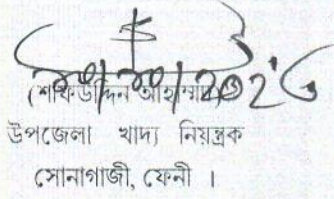 (শফিউদ্দিন আহাম্মদ)
উপজেলা খাদ্য নিয়ন্ত্রক
সোনাগাজী, ফেনী ।